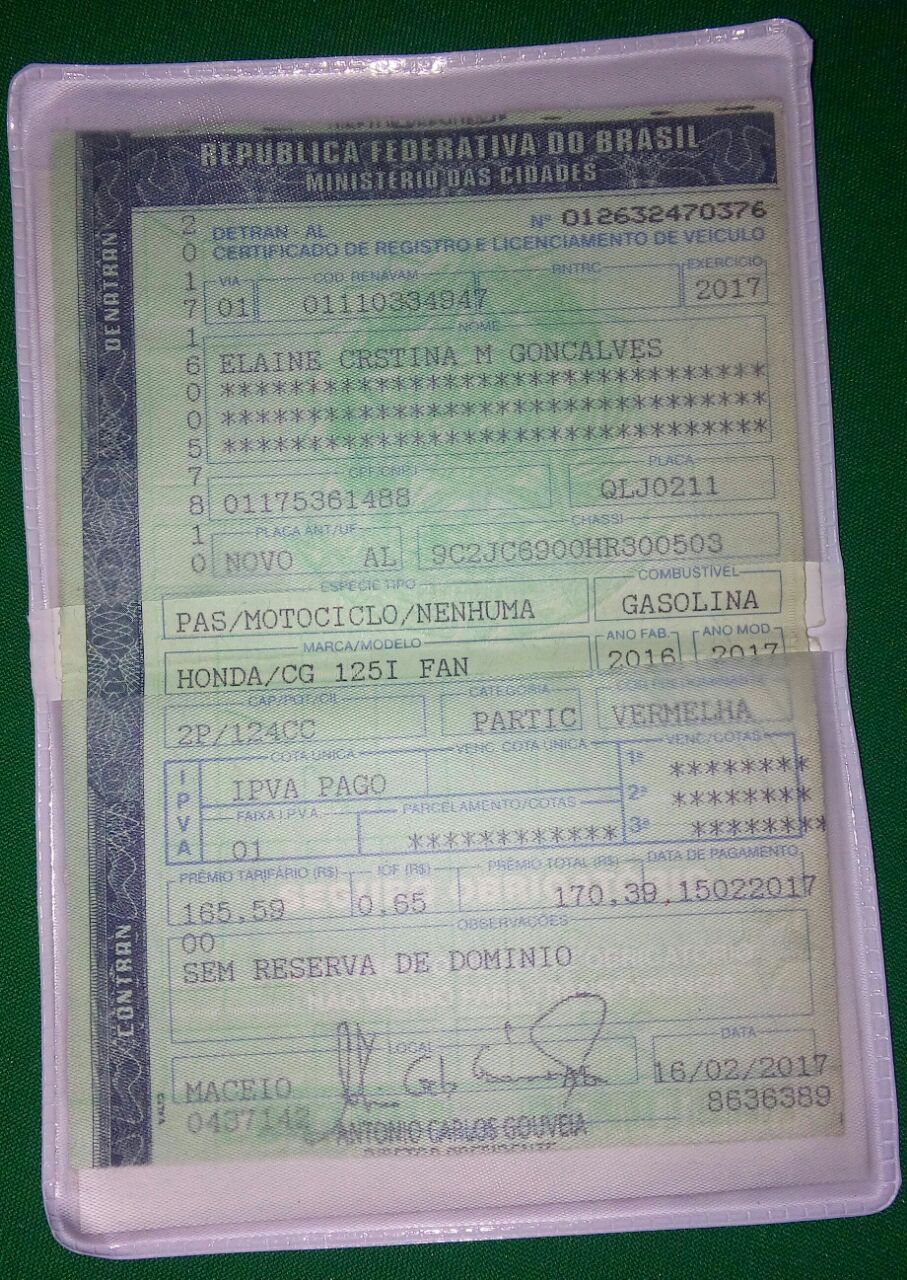 REPUBLICA FEDERATIVA DO BRASIL
MINISTÉRIO DAS CIDADES
DENATRAN
CONTRAN
2017160057810
DETRAN - AL Nº 012632470376
CERTIFICADO DE REGISTRO E LICENCIAMENTO DE VEICULO
VIA COD. RENAVAM RNTRC EXERCÍCIO
01 01110334947 2017
NOME
ELAINE CRSTINA M GONCALVES
********************************
********************************
********************************
CPF/CNPJ PLACA
01175361488 QLJ0211
PLACA ANT/UF CHASSI
NOVO AL 9C2JC6900HR300503
ESPÉCIE TIPO COMBUSTÍVEL
PAS/MOTOCICLO/NENHUMA GASOLINA
MARCA/MODELO ANO FAB. ANO MOD.
HONDA/CG 125I FAN 2016 2017
CAP/POT/CIL CATEGORIA
2P/124CC PARTIC VERMELHA
IPVA
COTA ÚNICA VENC. COTA ÚNICA VENC/COTAS
IPVA PAGO 1ª ********
FAIXA I.P.V.A. PARCELAMENTO/COTAS 2ª ********
01 ************ 3ª ********
PRÊMIO TARIFÁRIO (R$) IOF (R$) PRÊMIO TOTAL (R$) DATA DE PAGAMENTO
165.59 0.65 170.39 15022017
OBSERVAÇÕES
00
SEM RESERVA DE DOMINIO
LOCAL DATA
MACEIO 16/02/2017
0437142 8636389
ANTONIO CARLOS GOUVEIA
DIRETOR PRESIDENTE